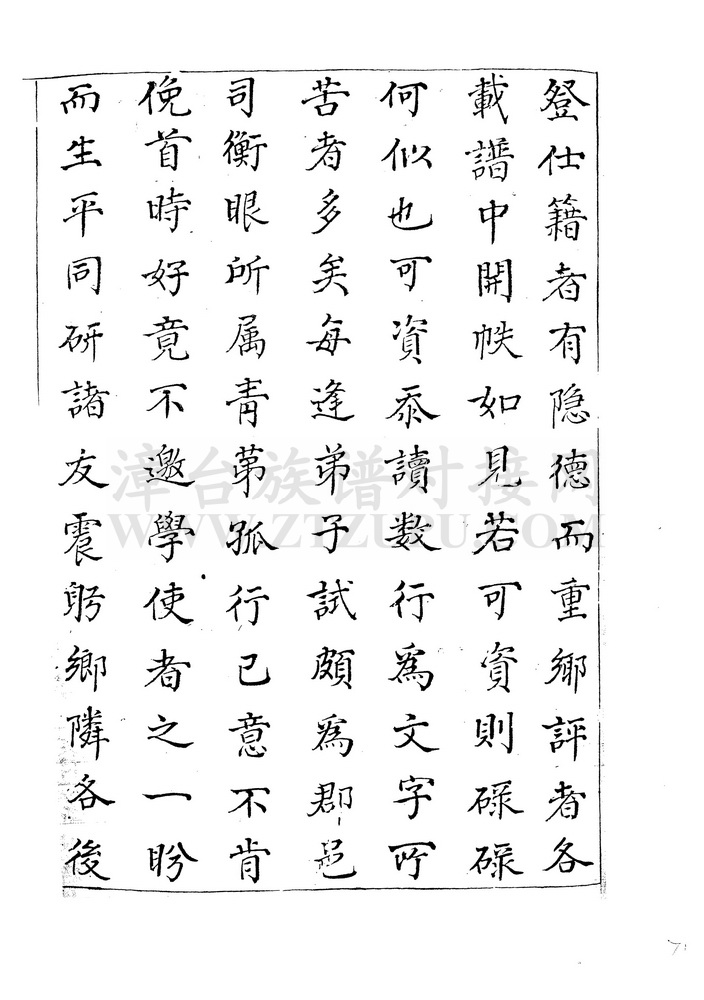 登仕籍者有隐德而重鄉評者各
載譜中開帙如見若可資則碌碌
何似也可資忝讀数行爲文字所
苦者多矣每逢弟子試頗爲郡邑
司衡眼所属青苐孤行已意不肯
俛首時好竟不邀學使者之一盻
而生平同研諸友震躬鄉隣各後
漳台族谱对接网
WWW.ZTZUPU.COM
71